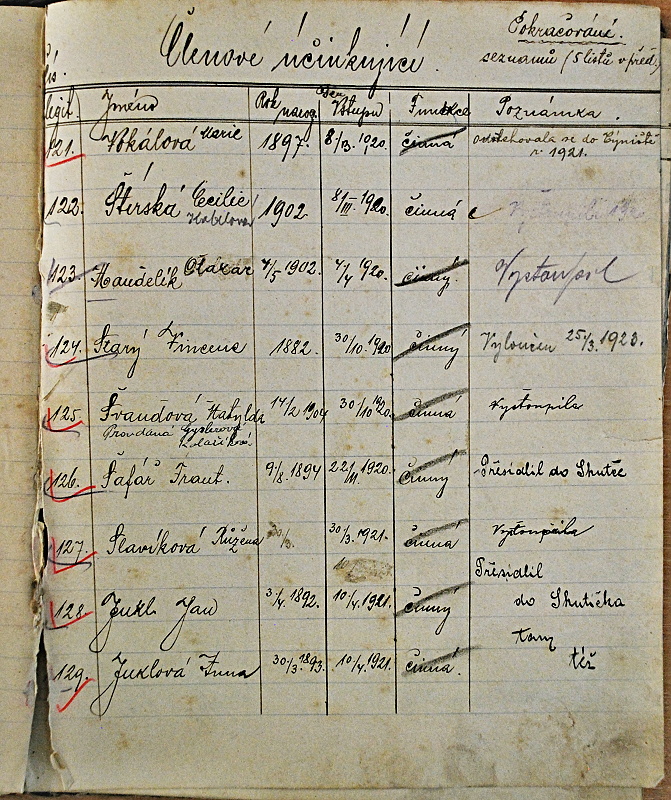 Členové účinkující.
Pokračování.
seznamů (5 listů v před.)
Čís.
legit. Jméno Rok naroz. Den Vstupu Funkce Poznámka.
121. Vokálová Marie 1897. 8/3. 1920. činná odstěhovala se do Týniště
r. 1921.
122. Štěrská Cecilie 1902. 8/III. 1920. činná
123. Otakar 4/5 1902. 4/4 1920. činný. Vystoupil
124. Starý Vincenc 1882. 30/10. 1920 činný Vyloučen 25/3. 1923.
125 Švandová 14/2 1904 30/10 1920. činná Vystoupila
Provdaná
126. Šafář Frant. 9/8. 1894 22/11. 1920. činný Přesídlil do Skutče
127. Slavíková Růžena 30/3. 30/3. 1921. činná Vystoupila
Přesídlil
128. Jukl Jan 3/4. 1892. 10/4. 1921. činný do Skutíčka
tam
též
129. Juklová Anna 30/3. 1893. 10/4. 1921. činná.